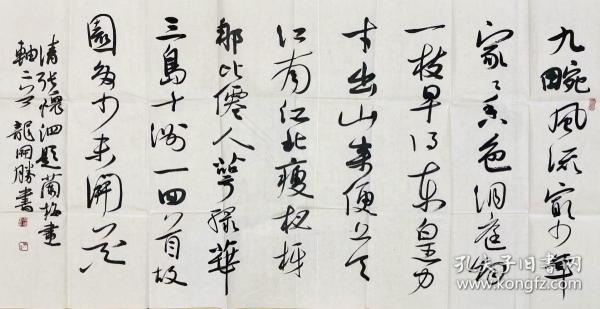 九畹風流最少年
家〻春色洞庭
一枝早得東皇力
才出山来便上天
江南江北瘦杈枒
那比僊人萼緑華
三島十洲一回首故
園多少未開花
清張愧泗題蘭梅畫
軸二首 龍開勝書
孔夫子旧书网
www.kongfz.com